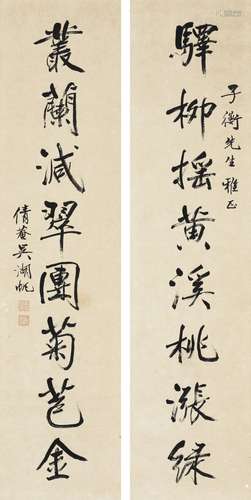 驛柳搖黃溪桃漲綠
子衡先生雅正
叢蘭減翠團菊苞金
倩菴吳湖帆